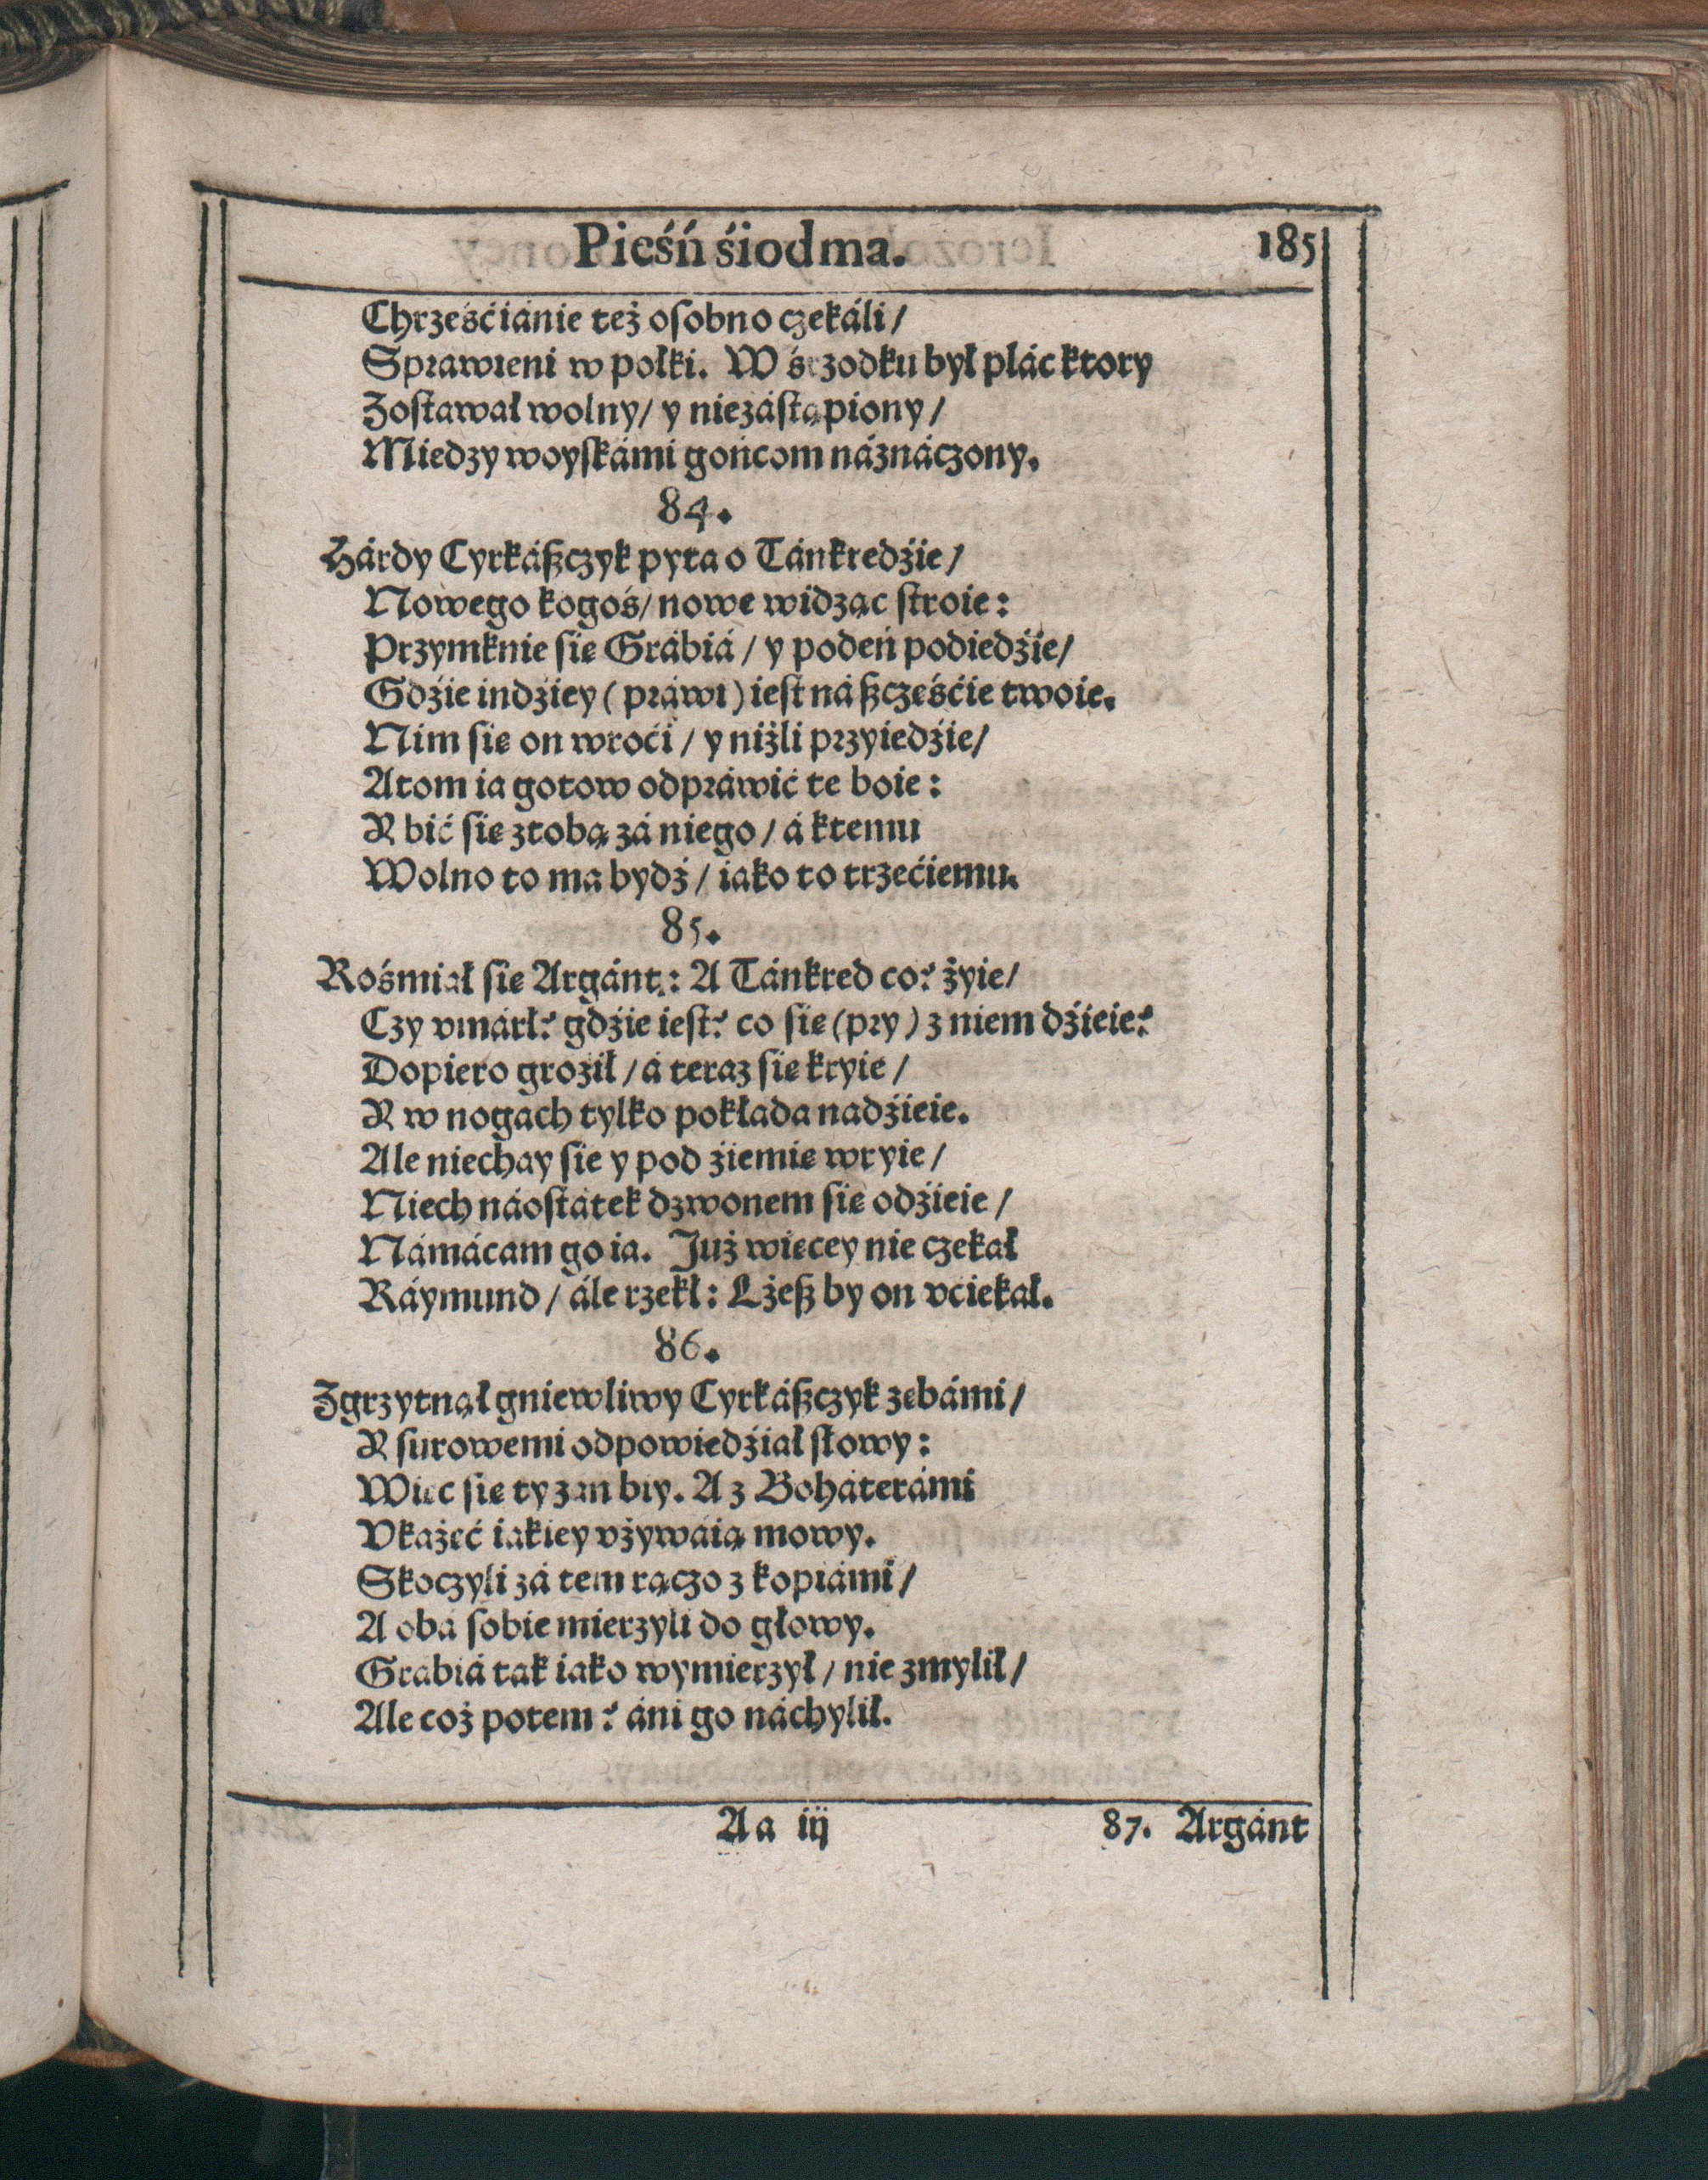 Pieśń śiodma. 185
Chrześćiánie też osobno czekáli/
Sprawieni w połki. W śrzodku był plác ktory
Zostawał wolny/ y niezástąpiony/
Miedzy woyskámi gońcom náznáczony.
84.
Hárdy Cyrkászczyk pyta o Tánkredźie/
Nowego kogoś/ nowe widząc stroie:
Przymknie się Grábiá/ y podeń podiedźie/
Gdźie indźiey (práwi) iest ná szczęśćie twoie.
Nim się on wroći/ y niżli przyiedźie/
Atom ia gotow odpráwić te boie:
Y bić się z tobą zá niego/ á ktemu
Wolno to ma bydź/ iáko to trzećiemu.
85.
Rośmiał się Argánt: A Tánkred co? żyie/
Czy vmárł? gdźie iest? co się (pry) z niem dźieie?
Dopiero groźił/ á teraz się kryie/
Y w nogach tylko pokłada nadźieie.
Ale niechay się y pod źiemię wryie/
Niech náostátek dzwonem się odźieie/
Námácam go ia. Już więcey nie czekał
Ráymund/ ále rzekł: Łżesz by on vciekał.
86.
Zgrzytnął gniewliwy Cyrkászczyk zębámi/
Y surowemi odpowiedźiał słowy:
Więc się ty zań biy. A z Boháterámi
Vkażęć iakiey vżywáią mowy.
Skoczyli zá tem rączo z kopiámi/
A obá sobie mierzyli do głowy.
Grabiá tak iáko wymierzył/ nie zmylił/
Ale coż potem? áni go náchylił.
Aa iij 87. Argánt